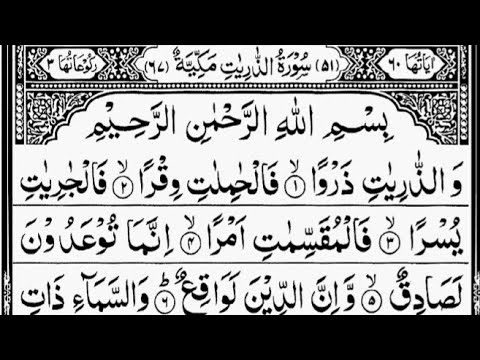 اٰيَاتُهَا ٦٠ (٥١) سُوْرَةُ الذّٰرِيٰتِ مَكِّيَّةٌ (٦٧) رُكُوْعَاتُهَا ٣
بِسْمِ اللهِ الرَّحْمٰنِ الرَّحِيْمِ
وَالذّٰرِيٰتِ ذَرْوًا ۙ﴿١﴾ فَالْحٰمِلٰتِ وِقْرًا ۙ﴿٢﴾ فَالْجٰرِيٰتِ
يُسْرًا ۙ﴿٣﴾ فَالْمُقَسِّمٰتِ اَمْرًا ۙ﴿٤﴾ اِنَّمَا تُوْعَدُوْنَ
لَصَادِقٌ ۙ﴿٥﴾ وَّاِنَّ الدِّيْنَ لَوَاقِعٌ ؕ﴿٦﴾ وَالسَّمَآءِ ذَاتِ